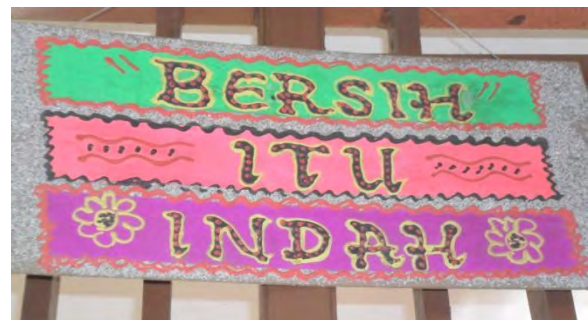 BERSIH
ITU
INDAH